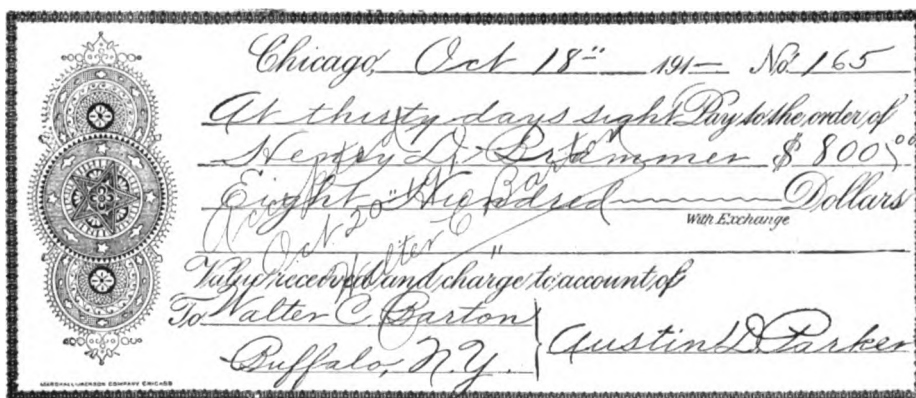 Chicago, Oct 18" 191— No. 165
At thirty days sight Pay to the order of
Henry D. Brammer $ 800.00
Eight Hundred Dollars
With Exchange
Accepted
Oct. 20" 191
Walter C. Barton
Value received and charge to account of
To Walter C. Barton
Buffalo, N.Y.
Austin D. Parker
MARSHALL-JACKSON COMPANY CHICAGO